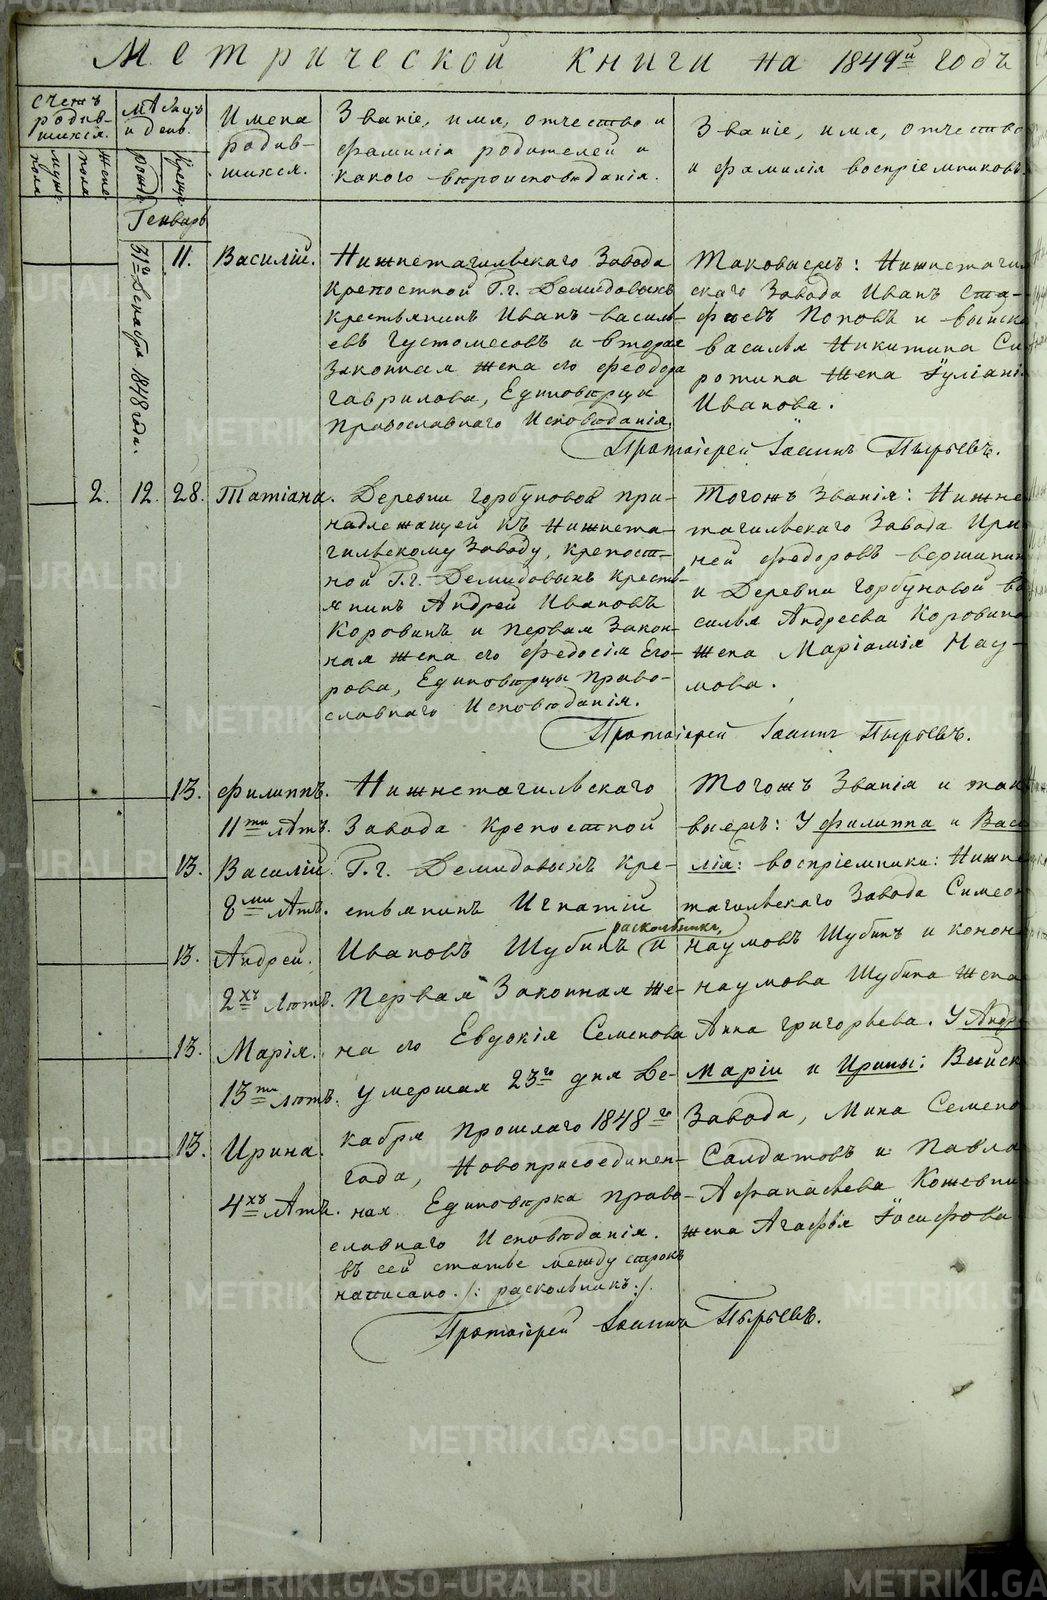 Метрической книги на 1849й годъ
Счетъ родив-шихся.
Муж: пола
Жен: пола
Мѣсяцъ и день.
рожд:
крещ:
Имена
родив-
шихся.
Званіе, имя, отчество и
фамилія родителей и
какого вѣроисповѣданія.
Званіе, имя, отчество
и фамилія воспріемниковъ
Генварь
31го Декабря 1848 года.
11. Василій.
Нижнетагильскаго Завода
крепостной Г.г. Демидовыхъ
крестьянинъ Иванъ Василь-
евъ Густомесовъ и вторая
законная жена его Феодора
Гаврилова, Единовѣрцы
Православнаго Исповѣданія.
Таковыемъ: Нижнетаги
скаго Завода Иванъ Ста-
фѣевъ Поповъ и Выйска
Василья Никитина Си
ротина жена Іуліані
Иванова.
Протоіерей Іоаннъ Пырьевъ.
2. 12. 28. Татіана.
Деревни Горбуновой при-
надлежащей къ Нижнета-
гильскому Заводу, крепост-
ной Г.г. Демидовыхъ кресть-
янинъ Андрей Ивановъ
Коровинъ и первая закон-
ная жена его Федосія Его-
рова, Единовѣрцы Право-
славнаго Исповѣданія.
Тогожъ Званія: Нижне
тагильскаго Завода Ири
ней Федоровъ Вершинин
и Деревни Горбуновой Ва
силья Андреева Коровина
жена Маріамія Нау-
мова.
Протоіерей Іоаннъ Пырьевъ.
13. Филиппъ.
11ти лѣтъ.
13. Василій.
8ми лѣтъ.
13. Андрей.
2хъ лѣтъ.
13. Марія.
13ти лѣтъ.
13. Ирина.
4хъ лѣтъ.
Нижнетагильскаго
Завода крепостной
Г.г. Демидовыхъ кре-
стьянинъ Игнатій
раскольникъ,
Ивановъ Шубинъ и
первая законная же-
на его Евдокія Семенова
умершая 23го дня Де-
кабря прошлаго 1848го
года, Новоприсоединен-
ная Единовѣрка право-
славнаго Исповѣданія.
въ сей статье между строкъ
написано /: раскольникъ :/.
Тогожъ Званія и так
выемъ: У Филиппа и Васи
лія: воспріемники: Нижне
тагильскаго Завода Симеон
Наумовъ Шубинъ и Конон
Наумова Шубина жена
Анна Григорьева. У Андре
Маріи и Ирины: Выйск
Завода, Мина Семено
Салдатовъ и Павла
Афанасьева Кожевни
жена Агафья Іосифова
Протоіерей Іоаннъ Пырьевъ.
METRIKI.GASO-URAL.RU